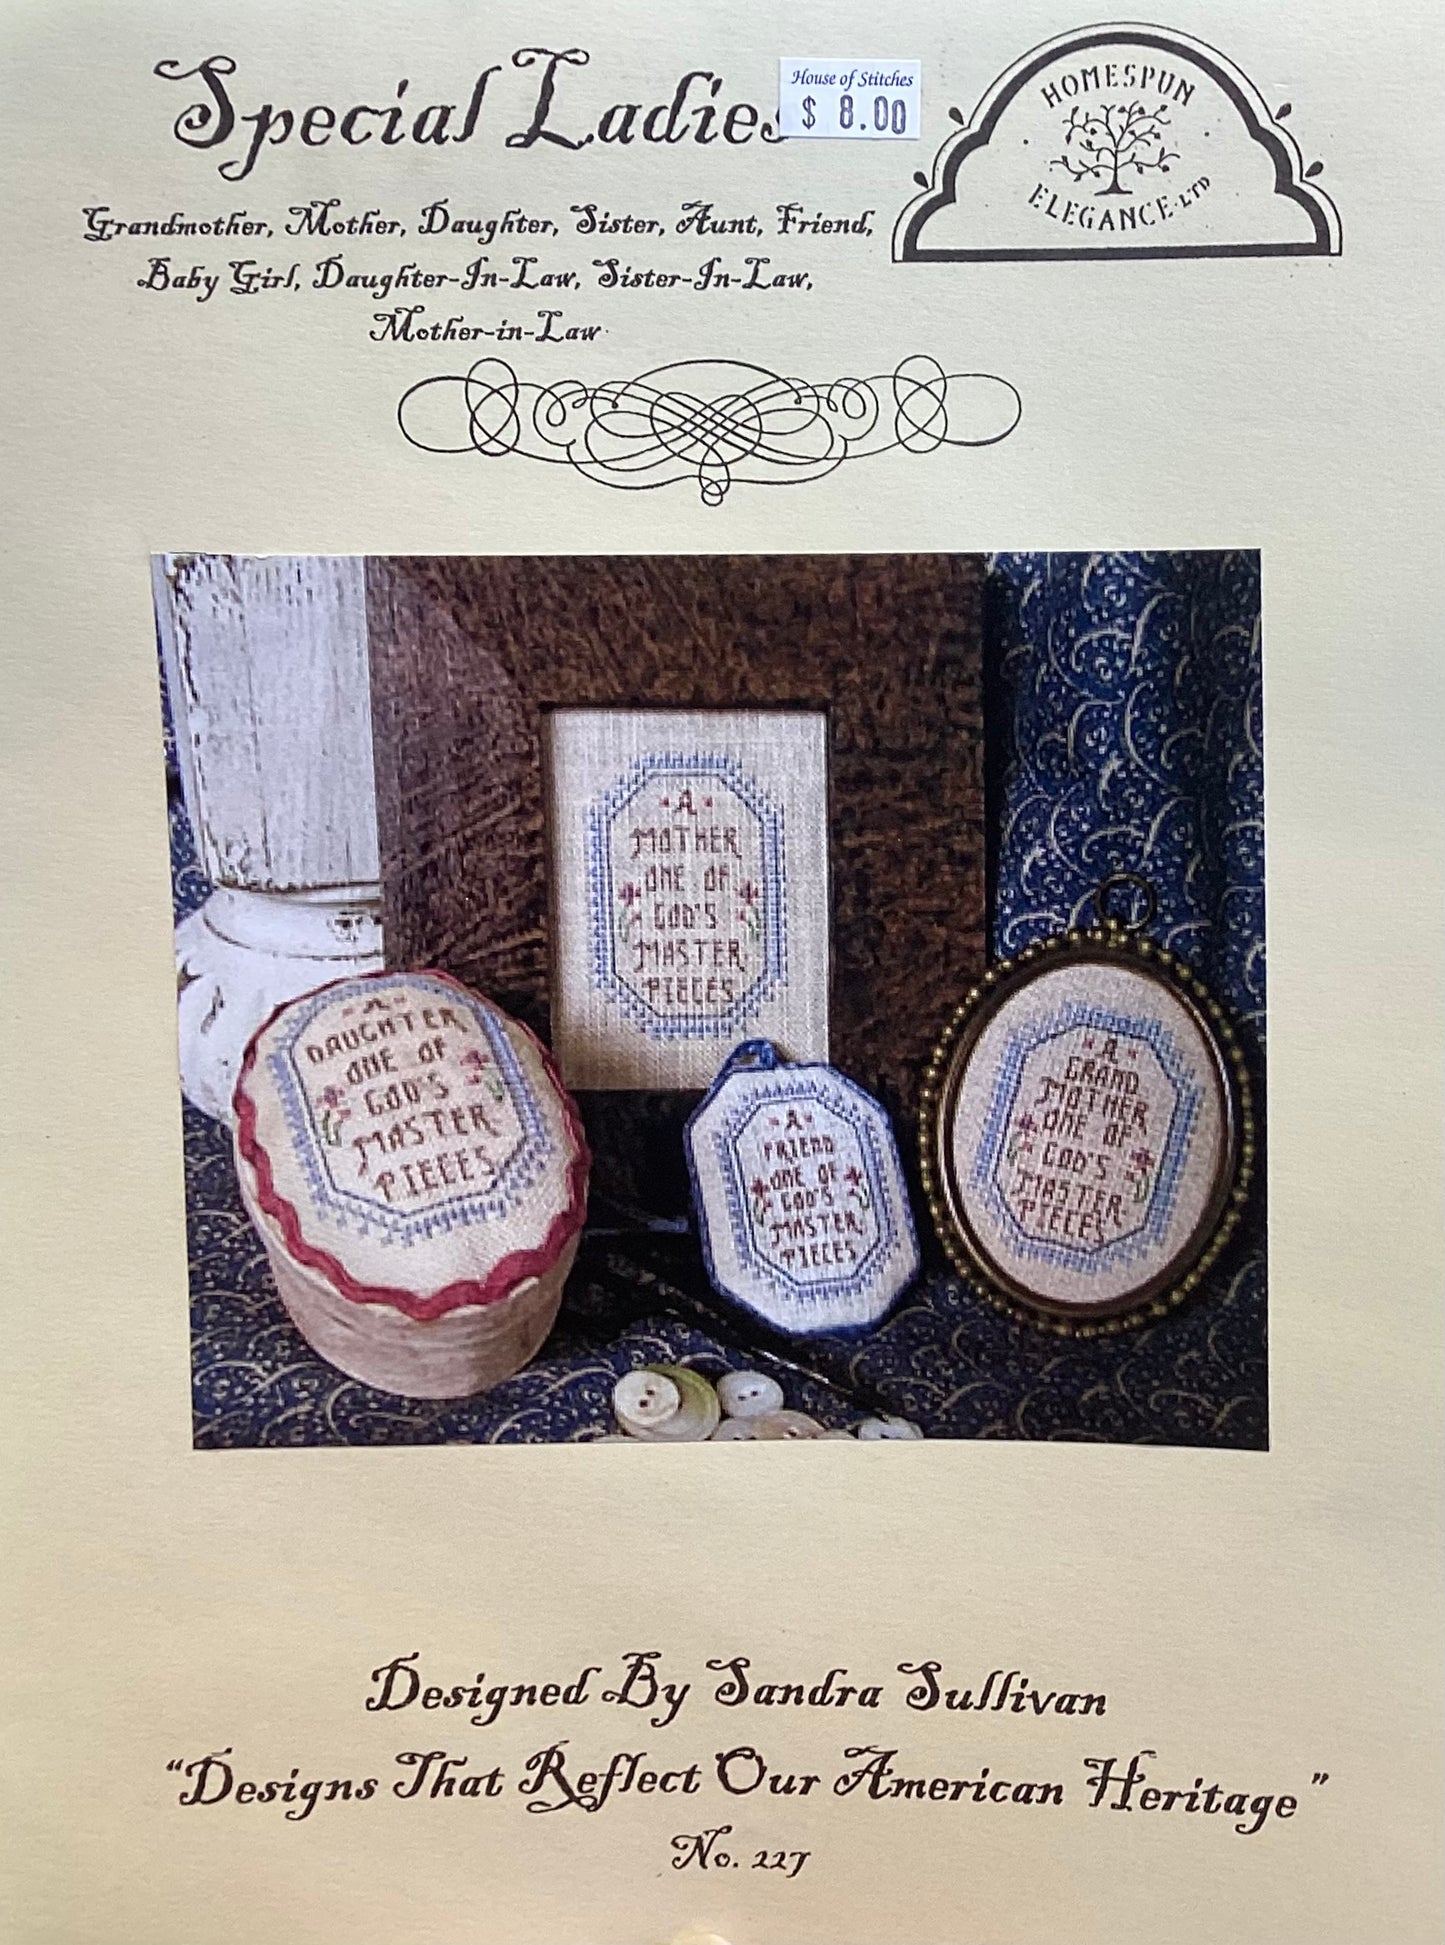 Special Ladies
House of Stitches
$ 8.00
HOMESPUN
ELEGANCE · LTD
Grandmother, Mother, Daughter, Sister, Aunt, Friend,
Baby Girl, Daughter-In-Law, Sister-In-Law,
Mother-in-Law
A
MOTHER
ONE OF
GOD'S
MASTER
PIECES
A
DAUGHTER
ONE OF
GOD'S
MASTER
PIECES
A
FRIEND
ONE OF
GOD'S
MASTER
PIECES
A
GRAND
MOTHER
ONE OF
GOD'S
MASTER
PIECES
Designed By Sandra Sullivan
"Designs That Reflect Our American Heritage"
No. 227